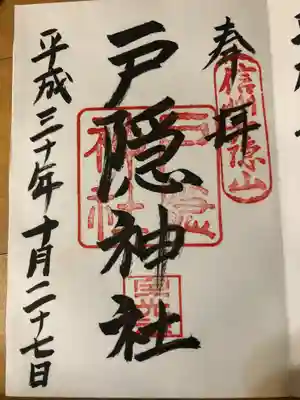 奉拝
信州戸隠山
戸隠神社
戸隠神社
平成三十年十月二十七日